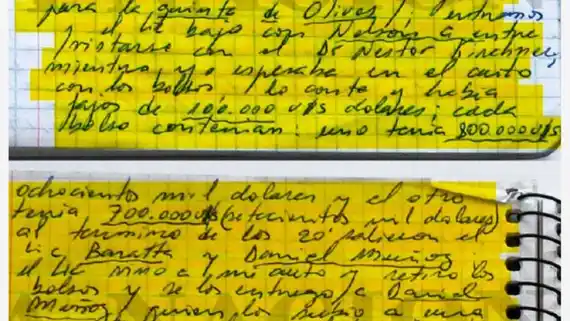 para la quinta de Olivos / Entramos
y el Lic bajo con Nelson a entre
/vistarse con el Dr Nestor Kirchner,
mientras yo esperaba en el auto
con los bolsos / lo conte y habia
fajos de 100.000 u$s dolares; cada
/bolso contenian: uno tenia 800.000u$s
ochocientos mil dolares y el otro
tenia 700.000u$s (setecientos mil dolares)
al termino de los 20' salieron el
Lic Baratta y Daniel Muñoz
el Lic vino a mi auto y retiro los
bolsos y se los entrego a Daniel
Muñoz, quien los subio a una